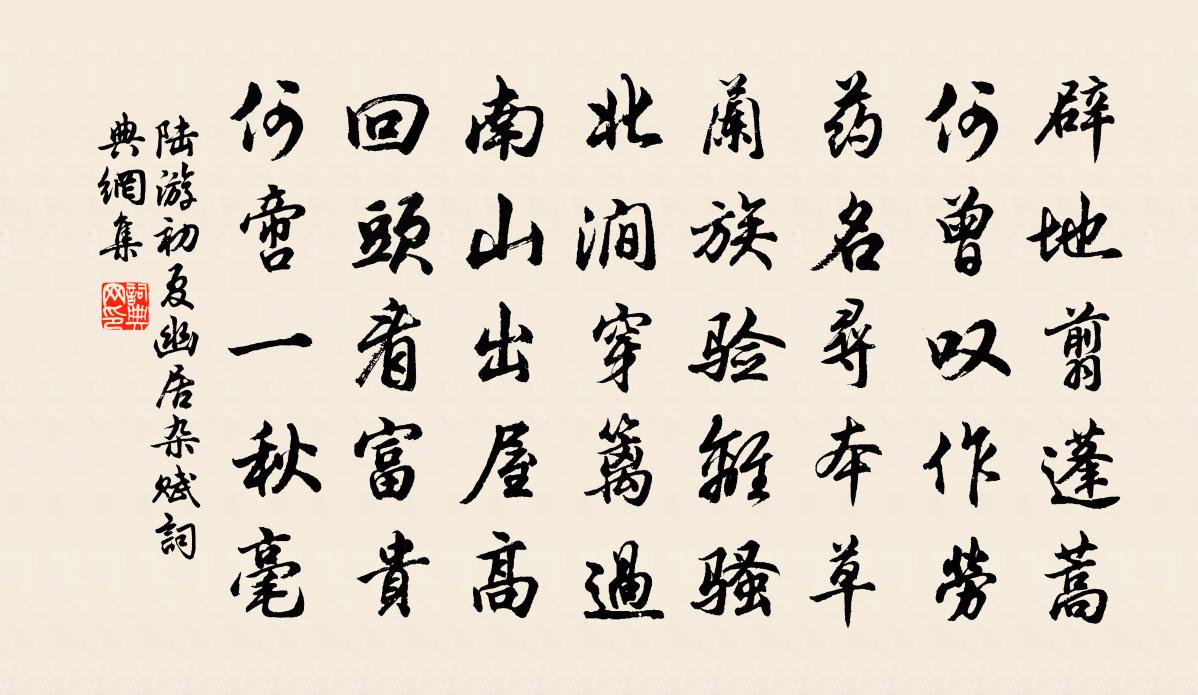 辟地翦蓬蒿
何曾叹作劳
药名寻本草
兰族验离骚
北涧穿篱过
南山出屋高
回头看富贵
何啻一秋毫
陆游初夏幽居杂赋词
典网集
词典网印